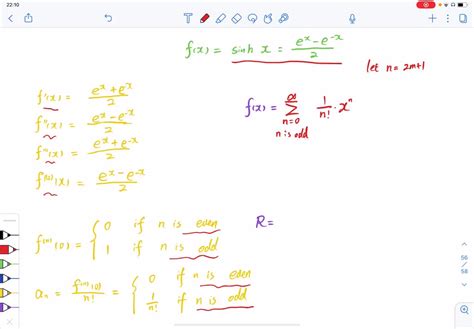 22:10
f(x) = sinh x = \frac{e^x - e^{-x}}{2}
let n = 2m+1
f'(x) = \frac{e^x + e^{-x}}{2}
f''(x) = \frac{e^x - e^{-x}}{2}
f'''(x) = \frac{e^x + e^{-x}}{2}
f^{(4)}(x) = \frac{e^x - e^{-x}}{2}
f(x) = \sum_{n=0}^{\infty} \frac{1}{n!} \cdot x^n
n is odd
f^{(n)}(0) = \begin{cases} 0 & if n is even \\ 1 & if n is odd \end{cases}
R =
a_n = \frac{f^{(n)}(0)}{n!} = \begin{cases} 0 & if n is even \\ \frac{1}{n!} & if n is odd \end{cases}
56
58